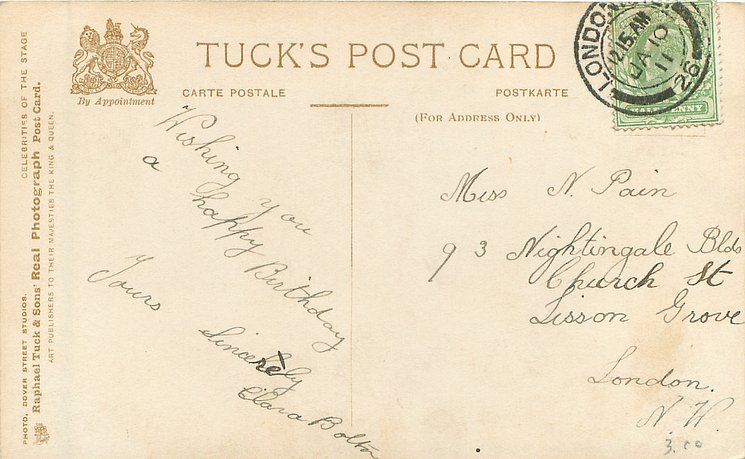 TUCK'S POST CARD
By Appointment
CARTE POSTALE
POSTKARTE
(FOR ADDRESS ONLY)
CELEBRITIES OF THE STAGE
PHOTO, DOVER STREET STUDIOS.
Raphael Tuck & Sons' Real Photograph Post Card.
ART PUBLISHERS TO THEIR MAJESTIES THE KING & QUEEN.
LONDON
12.15 AM
JA 10
11
26
HALFPENNY
Wishing you
a happy Birthday
Yours Sincerely
Clara Bolton
Miss N. Pain
93 Nightingale Blds
Church St
Lisson Grove
London.
N.W.
3.00